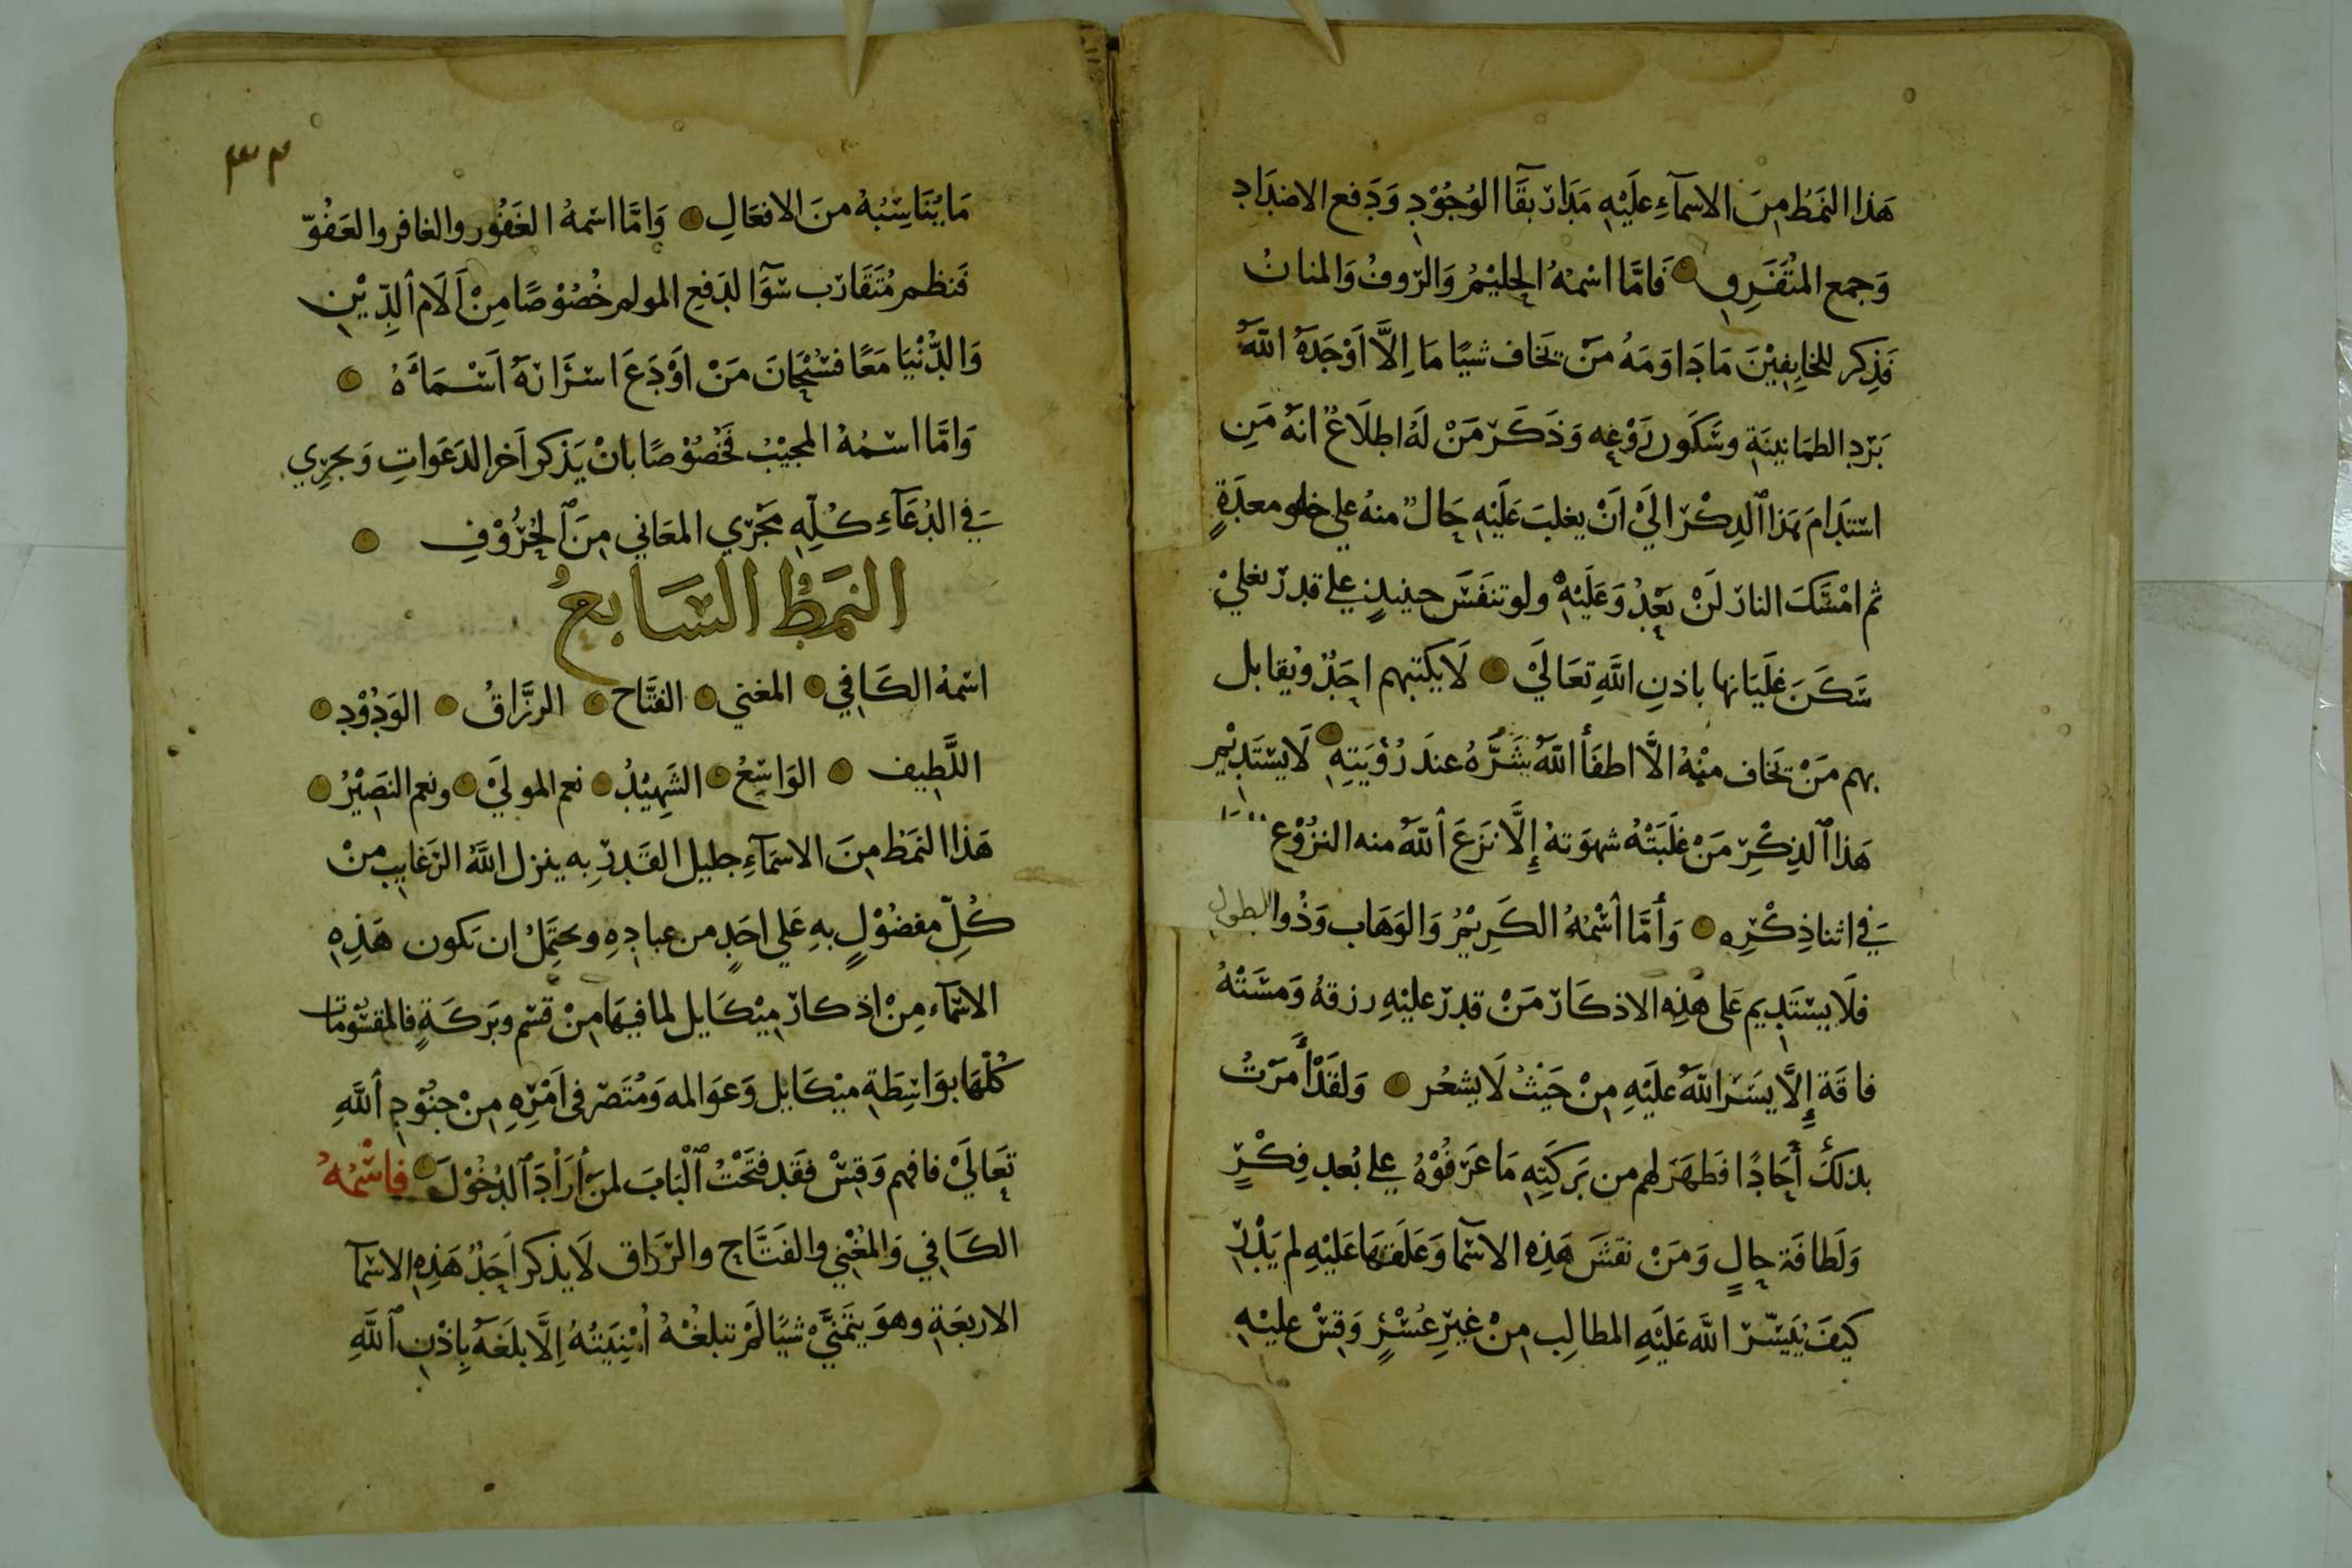 هَذا النمَطُ مِنَ الاسمَآءِ عليْهِ مَدَار بقَآ الوُجُوْدِ وَدَفع الاضدَادِ
وَجمع المتُفَرِقِ فَامَّا اسْمُهُ الحليْمُ وَالرّوفُ وَالمنانُ
فَذِكر للخايِفيْنَ مَا دَاوَمَهُ مَنْ يَخاف شيًا مَا اِلَّا اَوْجَدَهُ اللّٰهُ
بَرْد الطمَانينَةِ وسَكَون رَوْعِه وَذَكَرَ مَنْ لَهُ اطلَاعٌ انهُ مَنِ
استدَامَ هَذا الذِكْرَ الَيْ اَنْ يغلبَ عَلَيْهِ حَالٌ منهُ علي خلو معدَةٍ
ثم امْسَكَ النارَ لَنْ تعْدُ وَعَلَيْهِ ولو تنفَسَ حينيذٍ علي قدرٍ تغليْ
سَكَنَ غلَيَانها باذنِ اللَّهِ تعَالَيْ لَا يكتبهم احَدٌ ويُقابل
بهم مَنْ يَخاف منْهُ الَّا اطفَأ اللّٰهُ شَرَّهُ عندَ رُؤيَتِهِ لَا يسْتَدِيْم
هَذا الذِكْرِ مَنْ غلَبَتْهُ شهوَتهُ إِلَّا نزَعَ اللّٰهُ منه النزُوْع
فَي اثنا ذِكْرِه وَأمَّا اسْمُهُ الكَرِيْمُ وَالوَهَاب وَذُوا الطول
فلَا يسْتَدِيم عَلى هَذِهِ الاذكَار مَنْ قدرَ عليْهِ رزقهُ وَمسَتْهُ
فاقَة إِلَّا يسَرَ اللّٰهُ علَيْهِ مِنْ حَيْثُ لَا يشعُر وَلقَدْ أمرْتُ
بذلكَ أحَادًا فَظهَرَ لهم من بَركَتِهِ مَا عَرَفُوْهُ علي بُعد فِكْرٍ
وَلَطافَة حالٍ وَمَنْ نقشَ هَذِهِ الاسما وَعَلَقهَا عَليْهِ لم يَدْرِ
كيفَ يُيَسّرَ اللَّه عَلَيْهِ المطالِب مِنْ غيْرِ عُسْرٍ وَقِسْ عليْهِ
٣٣
مَا يُنَاسِبُهُ منَ الافعَالِ وَامَّا اسْمهُ الغَفُور والغافر والعَفُوّ
فَنظم مُتَقَارَب سَوَآ لدَفعِ المولم خُصُوْصًا مِنْ اَلَام الدِّيْنِ
وَالدُّنْيَا مَعًا فسُبْحَانَ مَنْ اَوْدَعَ اسْرَارَهُ اَسْمَاءَهُ
وَامَّا اسْمُهُ المجيْبُ فَخُصُوْصًا بانْ يَذكر اَخر الدَعَوَاتِ وَيجرِي
فَي الدُعَآءِ كُلِّهِ مَجْرَي المعَاني مِنَ الحُرُوْفِ
النمَطُ السَابعُ
اسْمهُ الكَافِي المغني الفتَّاح الرزَّاقُ الوَدُوْدِ
اللَّطِيف الوَاسِعُ الشَهِيْدُ نعم المولَيْ ونعم النصِيْرُ
هَذا النمَط مِنَ الاسمَآءِ جليل القَدرِ به ينزل اللَّهُ الرَغايب منْ
كُلِّ مفضُوْلٍ بهِ عَلي احَدٍ من عبادِهِ ويحتَمِلُ ان تكون هَذِهِ
الاسْمَآء مِنْ اذكار مِيْكَايل لما فيهَا مِنْ قسْم وبَركَةٍ فالمقسُومَات
كُلّهَا بوَاسِطَةِ ميْكَايل وَعَوَالمه وَمُتَصَرّفى اَمْرِهِ مِنْ جنُوْدِ اللَّهِ
تعَالَيْ فافهم وَقِسْ فقَد فتَحْتُ الْبَابَ لمَنْ أرَادَ الدُخُوْلَ فاسْمُهُ
الكَافِي وَالمُغْنِي والفَتَّاح والرَزَاق لَا يذكر اَحَدٌ هَذِهِ الاسْمَآ
الاربعَةِ وهوَ يتَمَنَّيْ شيًا لَمْ تبلغْهُ اُمْنِيَتُهُ اِلَّا بلَغهُ بِاِذْنِ اللَّهِ